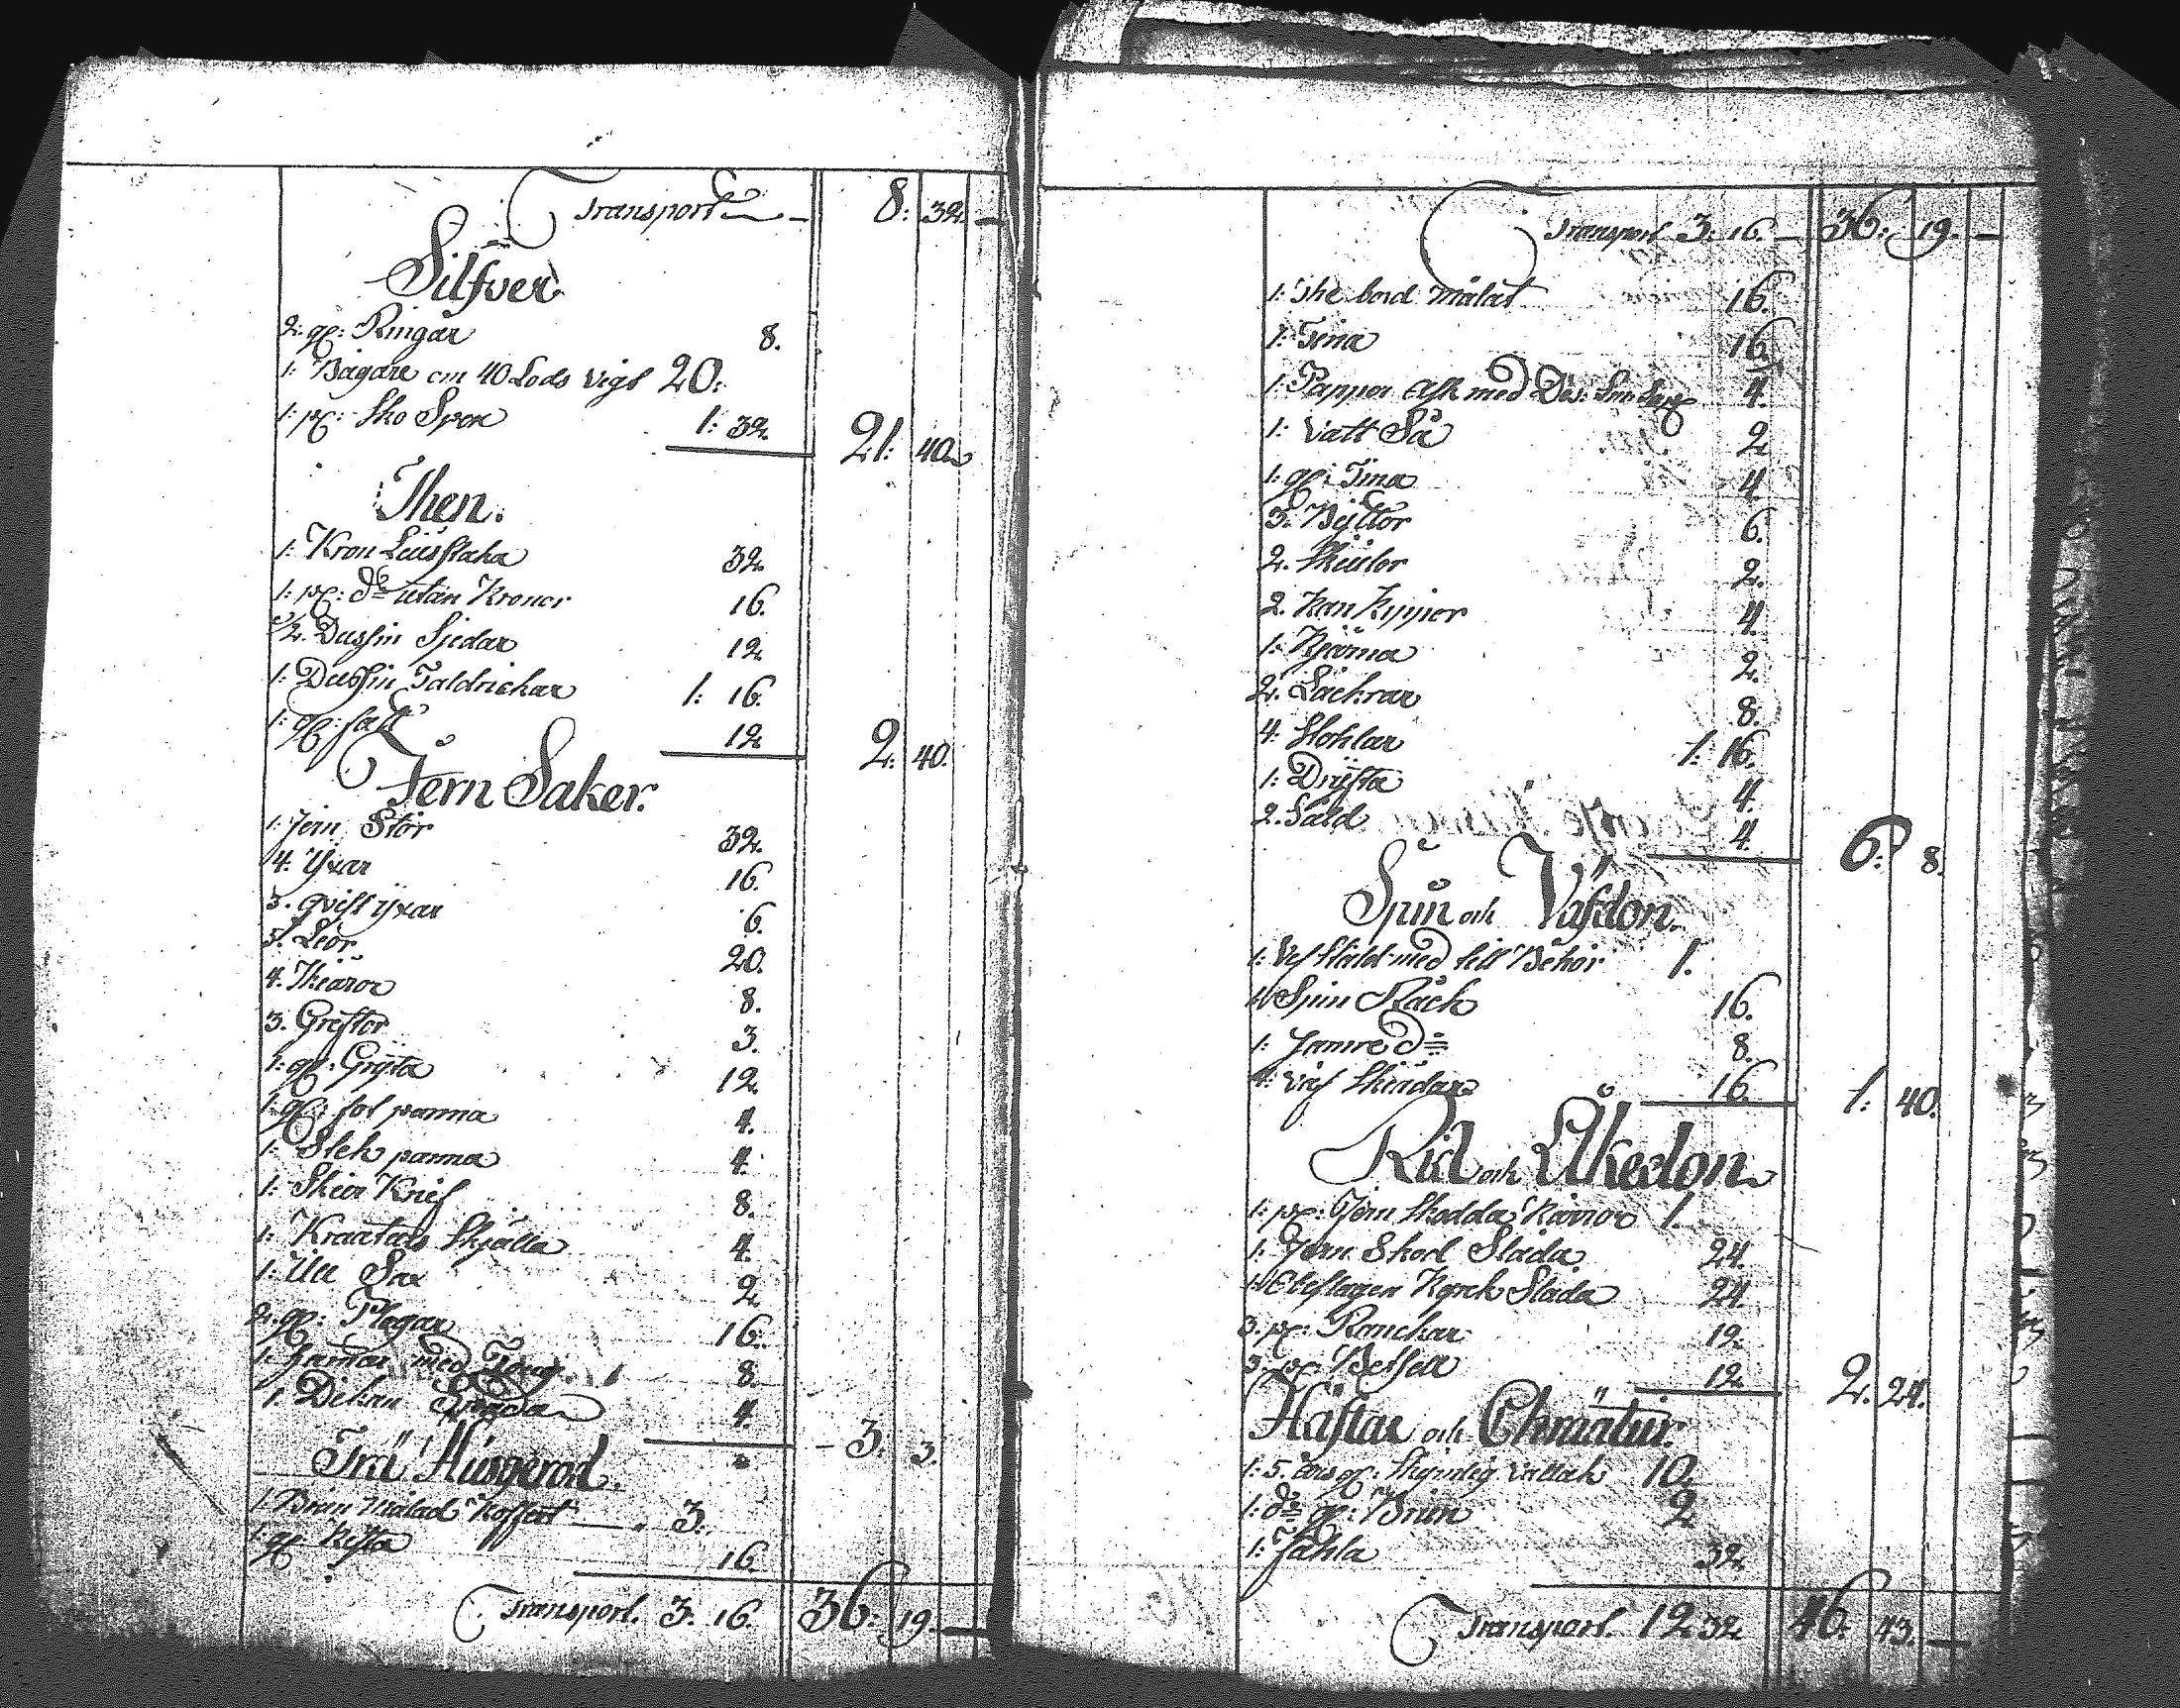 Transport 8: 32. —
Silfver
2. gl: Ringar 8.
1: Bägare om 40 Lods vigt 20:
1: pr: Sko Spen 1: 32. 21: 40.
Then.
1: Kron Liusstaka 32.
1: pr: do utan Kronor 16.
1/2. Dussin Sjedar 12.
1: Dussin Taldrickar 1: 16.
1: gl: fatt 12. 2: 40.
Jern Saker.
1: Jern Stör 32.
4. Yxar 16.
3. qvist yxar 6.
5. Leor 20.
4. Skiäror 8.
3. Greftor 3.
1: gl: Gryta 12.
1: gl: fot panna 4.
1: Stek panna 4.
1: Sker Knif 8.
1: Kreaturs Skjälla 4.
1: Ull Sax 2.
2. gl: Plogar 16.
1: Hamar med Tong 8.
1. Dikan 4. 3. 3.
Trä Husgeråd.
1. Brun Målad Koffert 3.
1: gl Kista 16.
Transport. 3. 16. 36. 19. —
Transport 3. 16. — 36. 19. —
1: The bord målat 16.
1: Tina 16.
1: Pappor Ask med 4.
1: Vatt Så 2.
1: gl: Tina 4.
3. Byttor 6.
2. Skiulor 2.
2. Kan Kippor 4.
1: Kjärna 2.
2. Läckrar 8.
4. Stohlar 1: 16.
1: Dryfta 4.
2. Såld 4. 6: 8.
Spin och Väfdon.
1: Vefstald med till Behör 1.
1: Spin Råck 16.
1: Samre do 8.
4: väf Skiedar 16. 1: 40.
Rid och Åkedon
1: pr: Jern Skodda Kärror 1.
1: Jern Skod Släda 24.
1: Kyrck Släda 24.
3. pr: Ranckar 12.
3. pr: Betsla 12. 2. 24.
Hästar och Chreatur.
1: 5. års gl: Skymlig vallack 10.
1: do gl: Brun 2.
1: Fåhla 32.
Transport. 12. 32. 46. 43. —